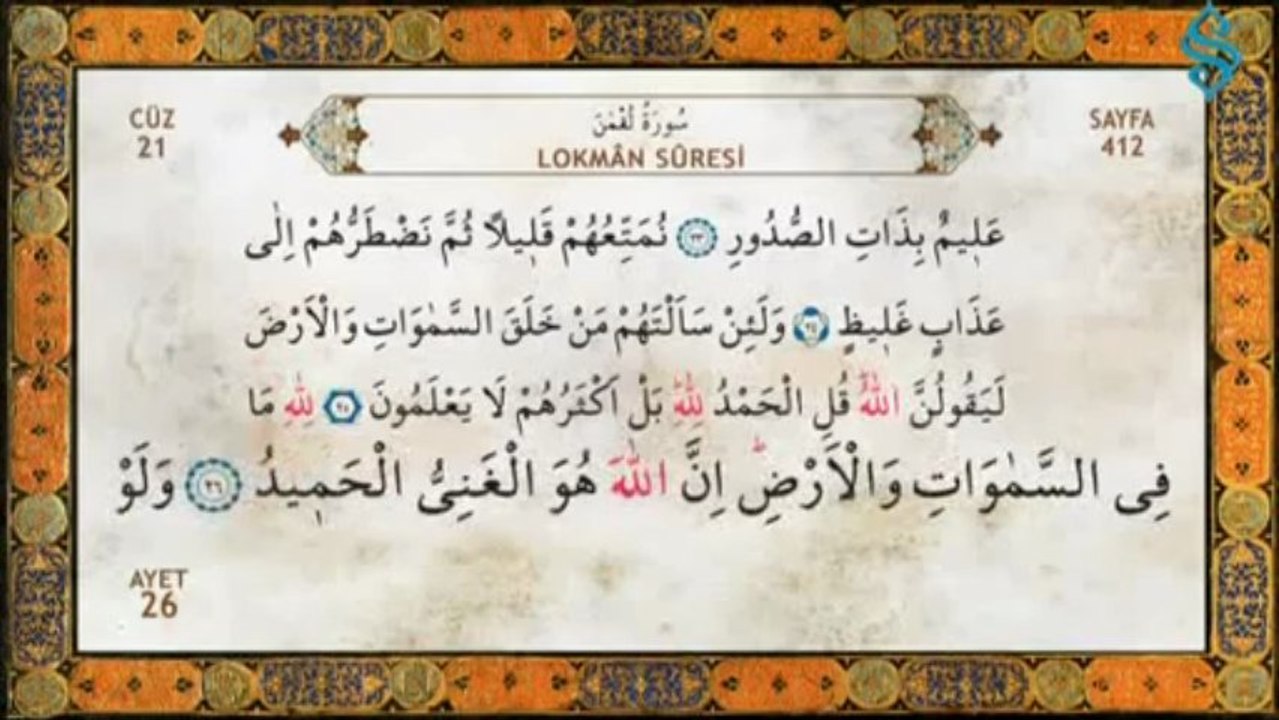 CÜZ
21
سُورَةُ لُقْمٰنَ
LOKMÂN SÛRESİ
SAYFA
412
عَلٖيمٌ بِذَاتِ الصُّدُورِ ﴿٢٣﴾ نُمَتِّعُهُمْ قَلٖيلًا ثُمَّ نَضْطَرُّهُمْ اِلٰى
عَذَابٍ غَلٖيظٍ ﴿٢٤﴾ وَلَئِنْ سَاَلْتَهُمْ مَنْ خَلَقَ السَّمٰوَاتِ وَالْاَرْضَ
لَيَقُولُنَّ اللّٰهُؕ قُلِ الْحَمْدُ لِلّٰهِؕ بَلْ اَكْثَرُهُمْ لَا يَعْلَمُونَ ﴿٢٥﴾ لِلّٰهِ مَا
فِى السَّمٰوَاتِ وَالْاَرْضِؕ اِنَّ اللّٰهَ هُوَ الْغَنِىُّ الْحَمٖيدُ ﴿٢٦﴾ وَلَوْ
AYET
26